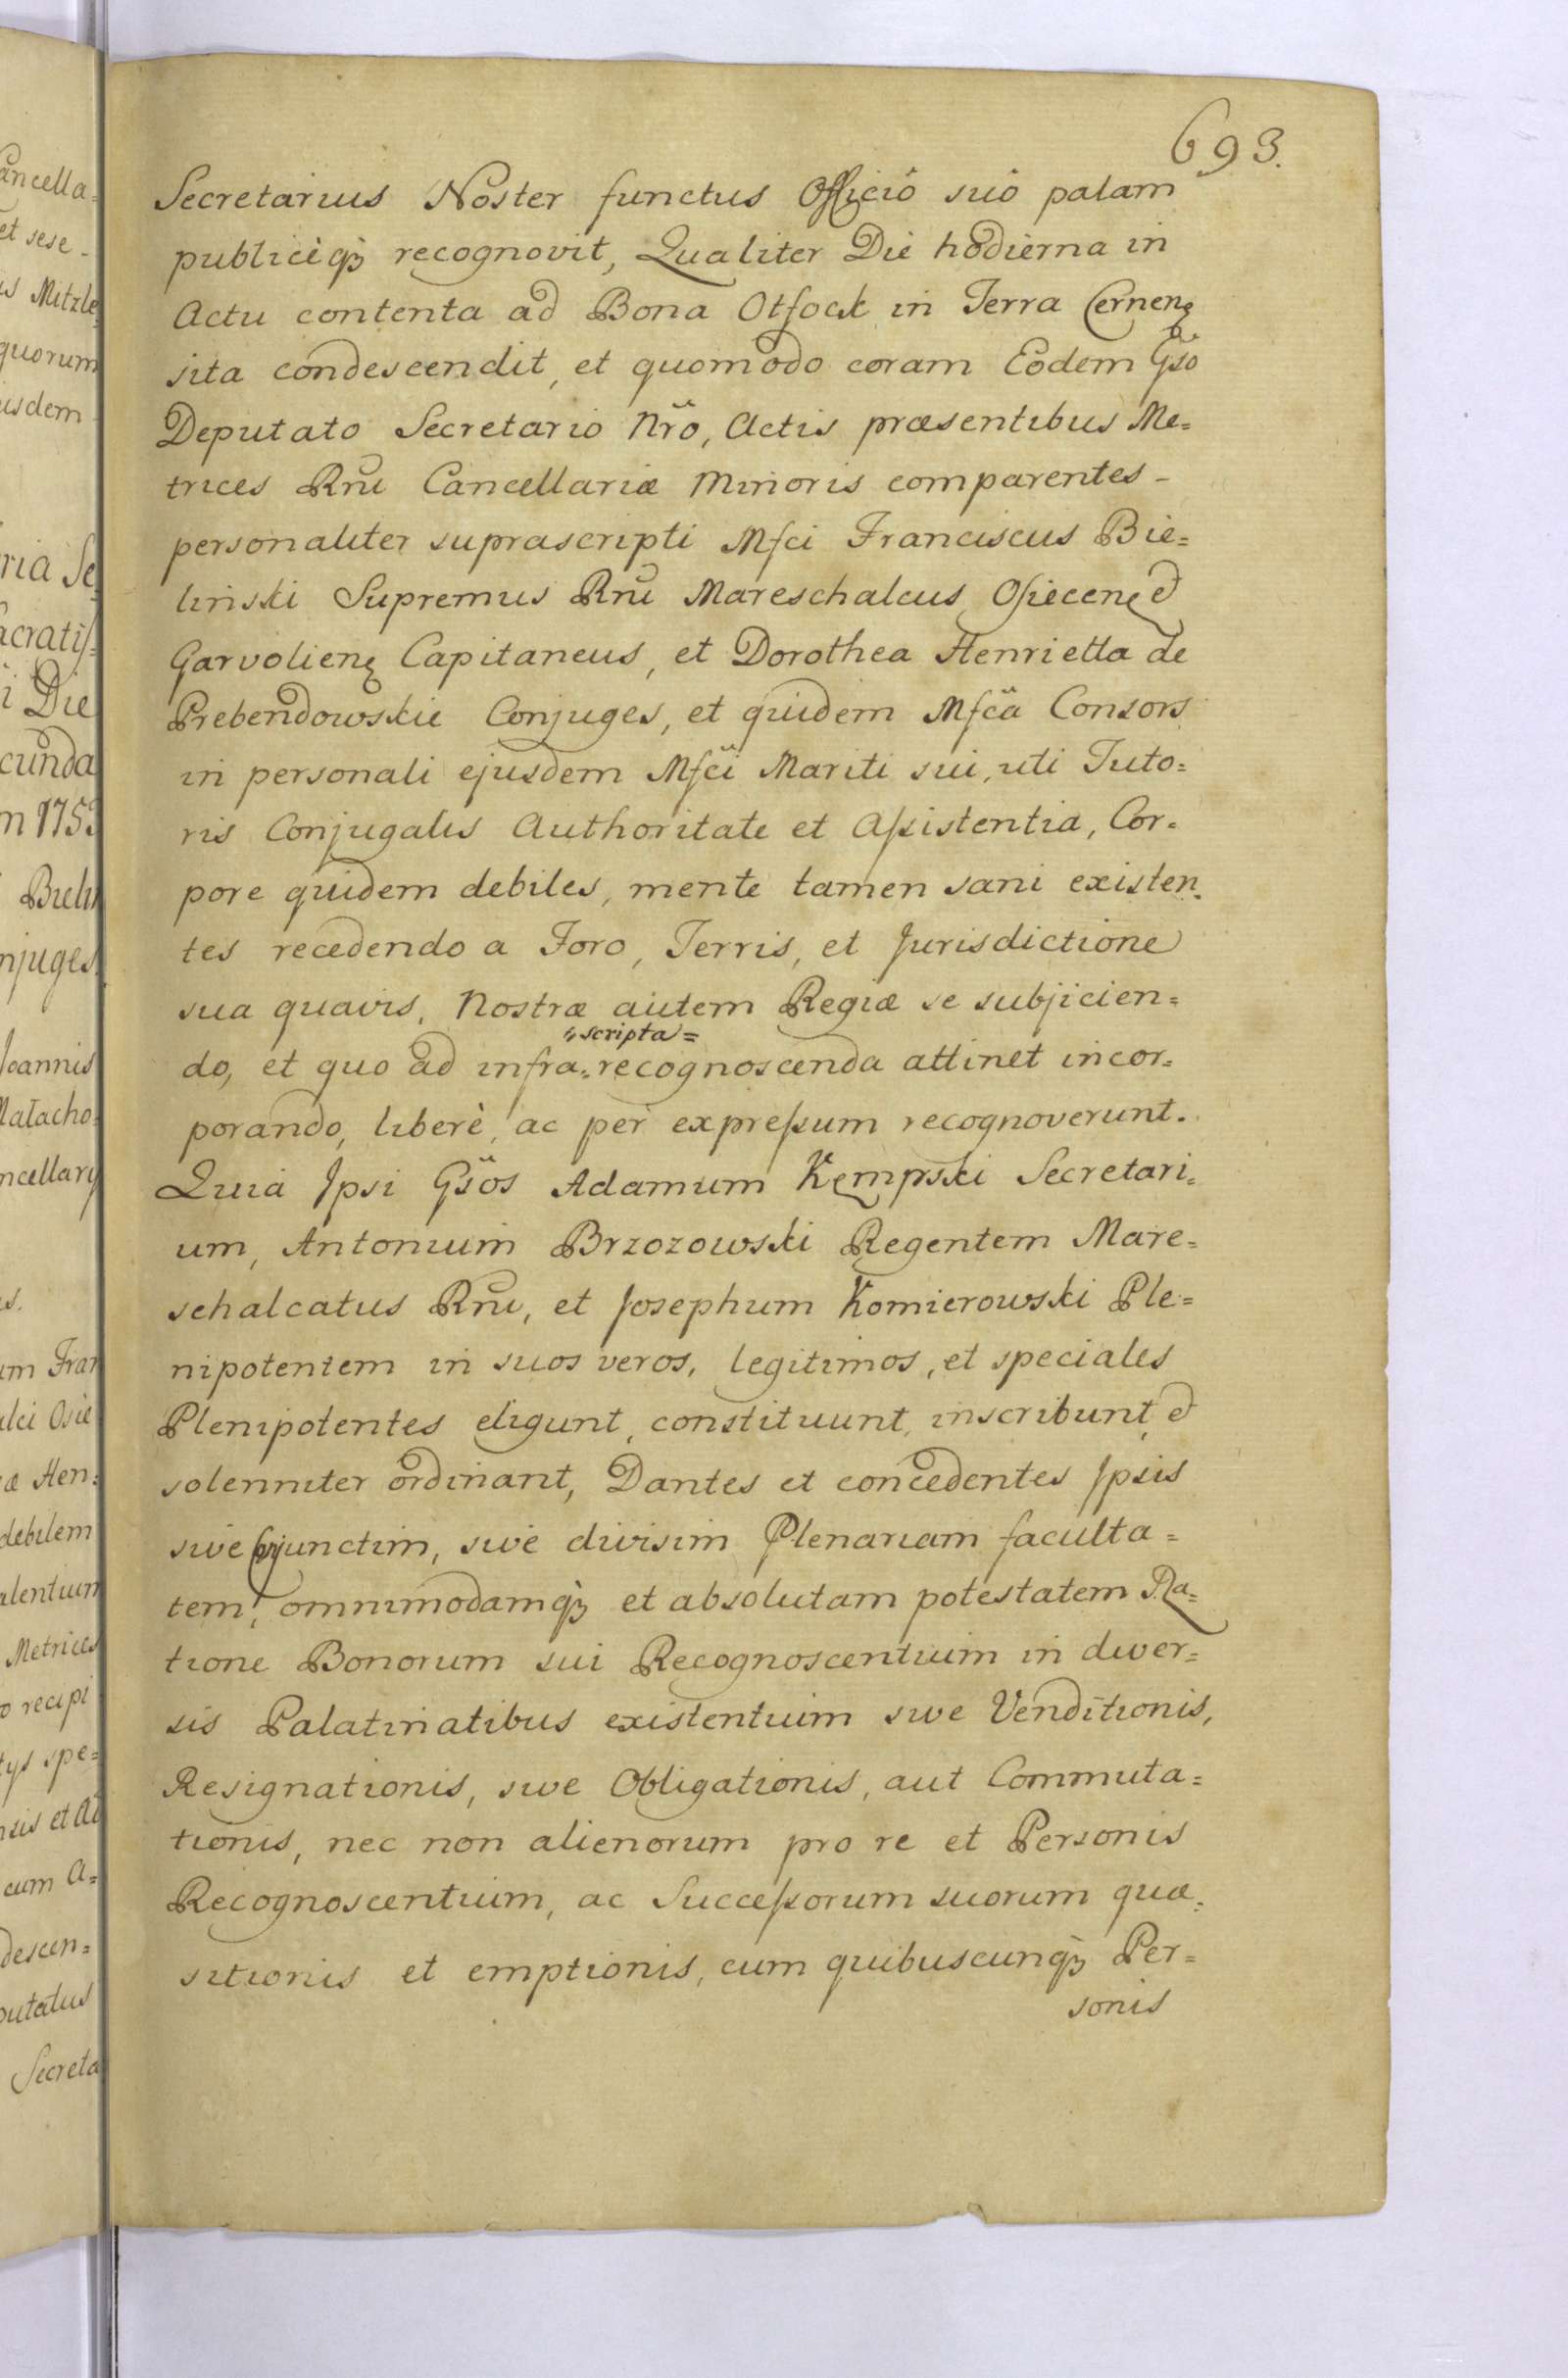 693.
Secretarius Noster functus Officiô suô palam
publicèq3 recognovit, Qualiter Die hodierna in
Actu contenta ad Bona Otſock in Terra Cernenę
sita condescendit, et quomodo coram Eodem Gso
Deputato Secretario Nrõ, Actis præsentibus Me=
trices Rnĩ Cancellariæ Minoris comparentes -
personaliter suprascripti Mfci Franciscus Bie=
linski Supremus Rnĩ Mareschalcus Oſiecenę &
Garvolienę Capitaneus, et Dorothea Henrietta de
Prebendowskie Conjuges, et quidem Mfcã Consors
in personali ejusdem Mfcĩ Mariti sui, uti Tuto=
ris Conjugalis Authoritate et Aſsistentia, Cor=
pore quidem debiles, mente tamen sani existen=
tes recedendo a Foro, Terris, et Jurisdictione
sua quavis, Nostræ autem Regiæ se subjicien=
scripta=
do, et quo ad infra=recognoscenda attinet incor=
porando, liberè, ac per expreſsum recognoverunt.
Quia Jpsi Gsõs Adamum Kęmpski Secretari=
um, Antonium Brzozowski Regentem Mare=
schalcatus Rnĩ, et Josephum Komierowski Ple=
nipotentem in suos veros, legitimos, et speciales
Plenipotentes eligunt, constituunt, inscribunt, &
solenniter ordinant, Dantes et concedentes Jpsis
sive conjunctim, sive divisim Plenariam faculta=
tem, omnimodamq3 et absolutam potestatem Ra=
tione Bonorum sui Recognoscentium in diver=
sis Palatinatibus existentium sive Venditionis,
Resignationis, sive Obligationis, aut Commuta=
tionis, nec non alienorum pro re et Personis
Recognoscentium, ac Succeſsorum suorum quæ=
sitionis et emptionis, cum quibuscunq3 Per=
sonis